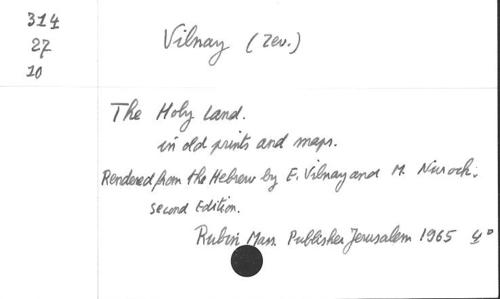 314
27
10
Vilnay (Zev.)
The Holy Land.
in old prints and maps.
Rendered from the Hebrew by E. Vilnay and M. Nurock.
Second Edition.
Rubin Mass Publisher Jerusalem 1965 4°